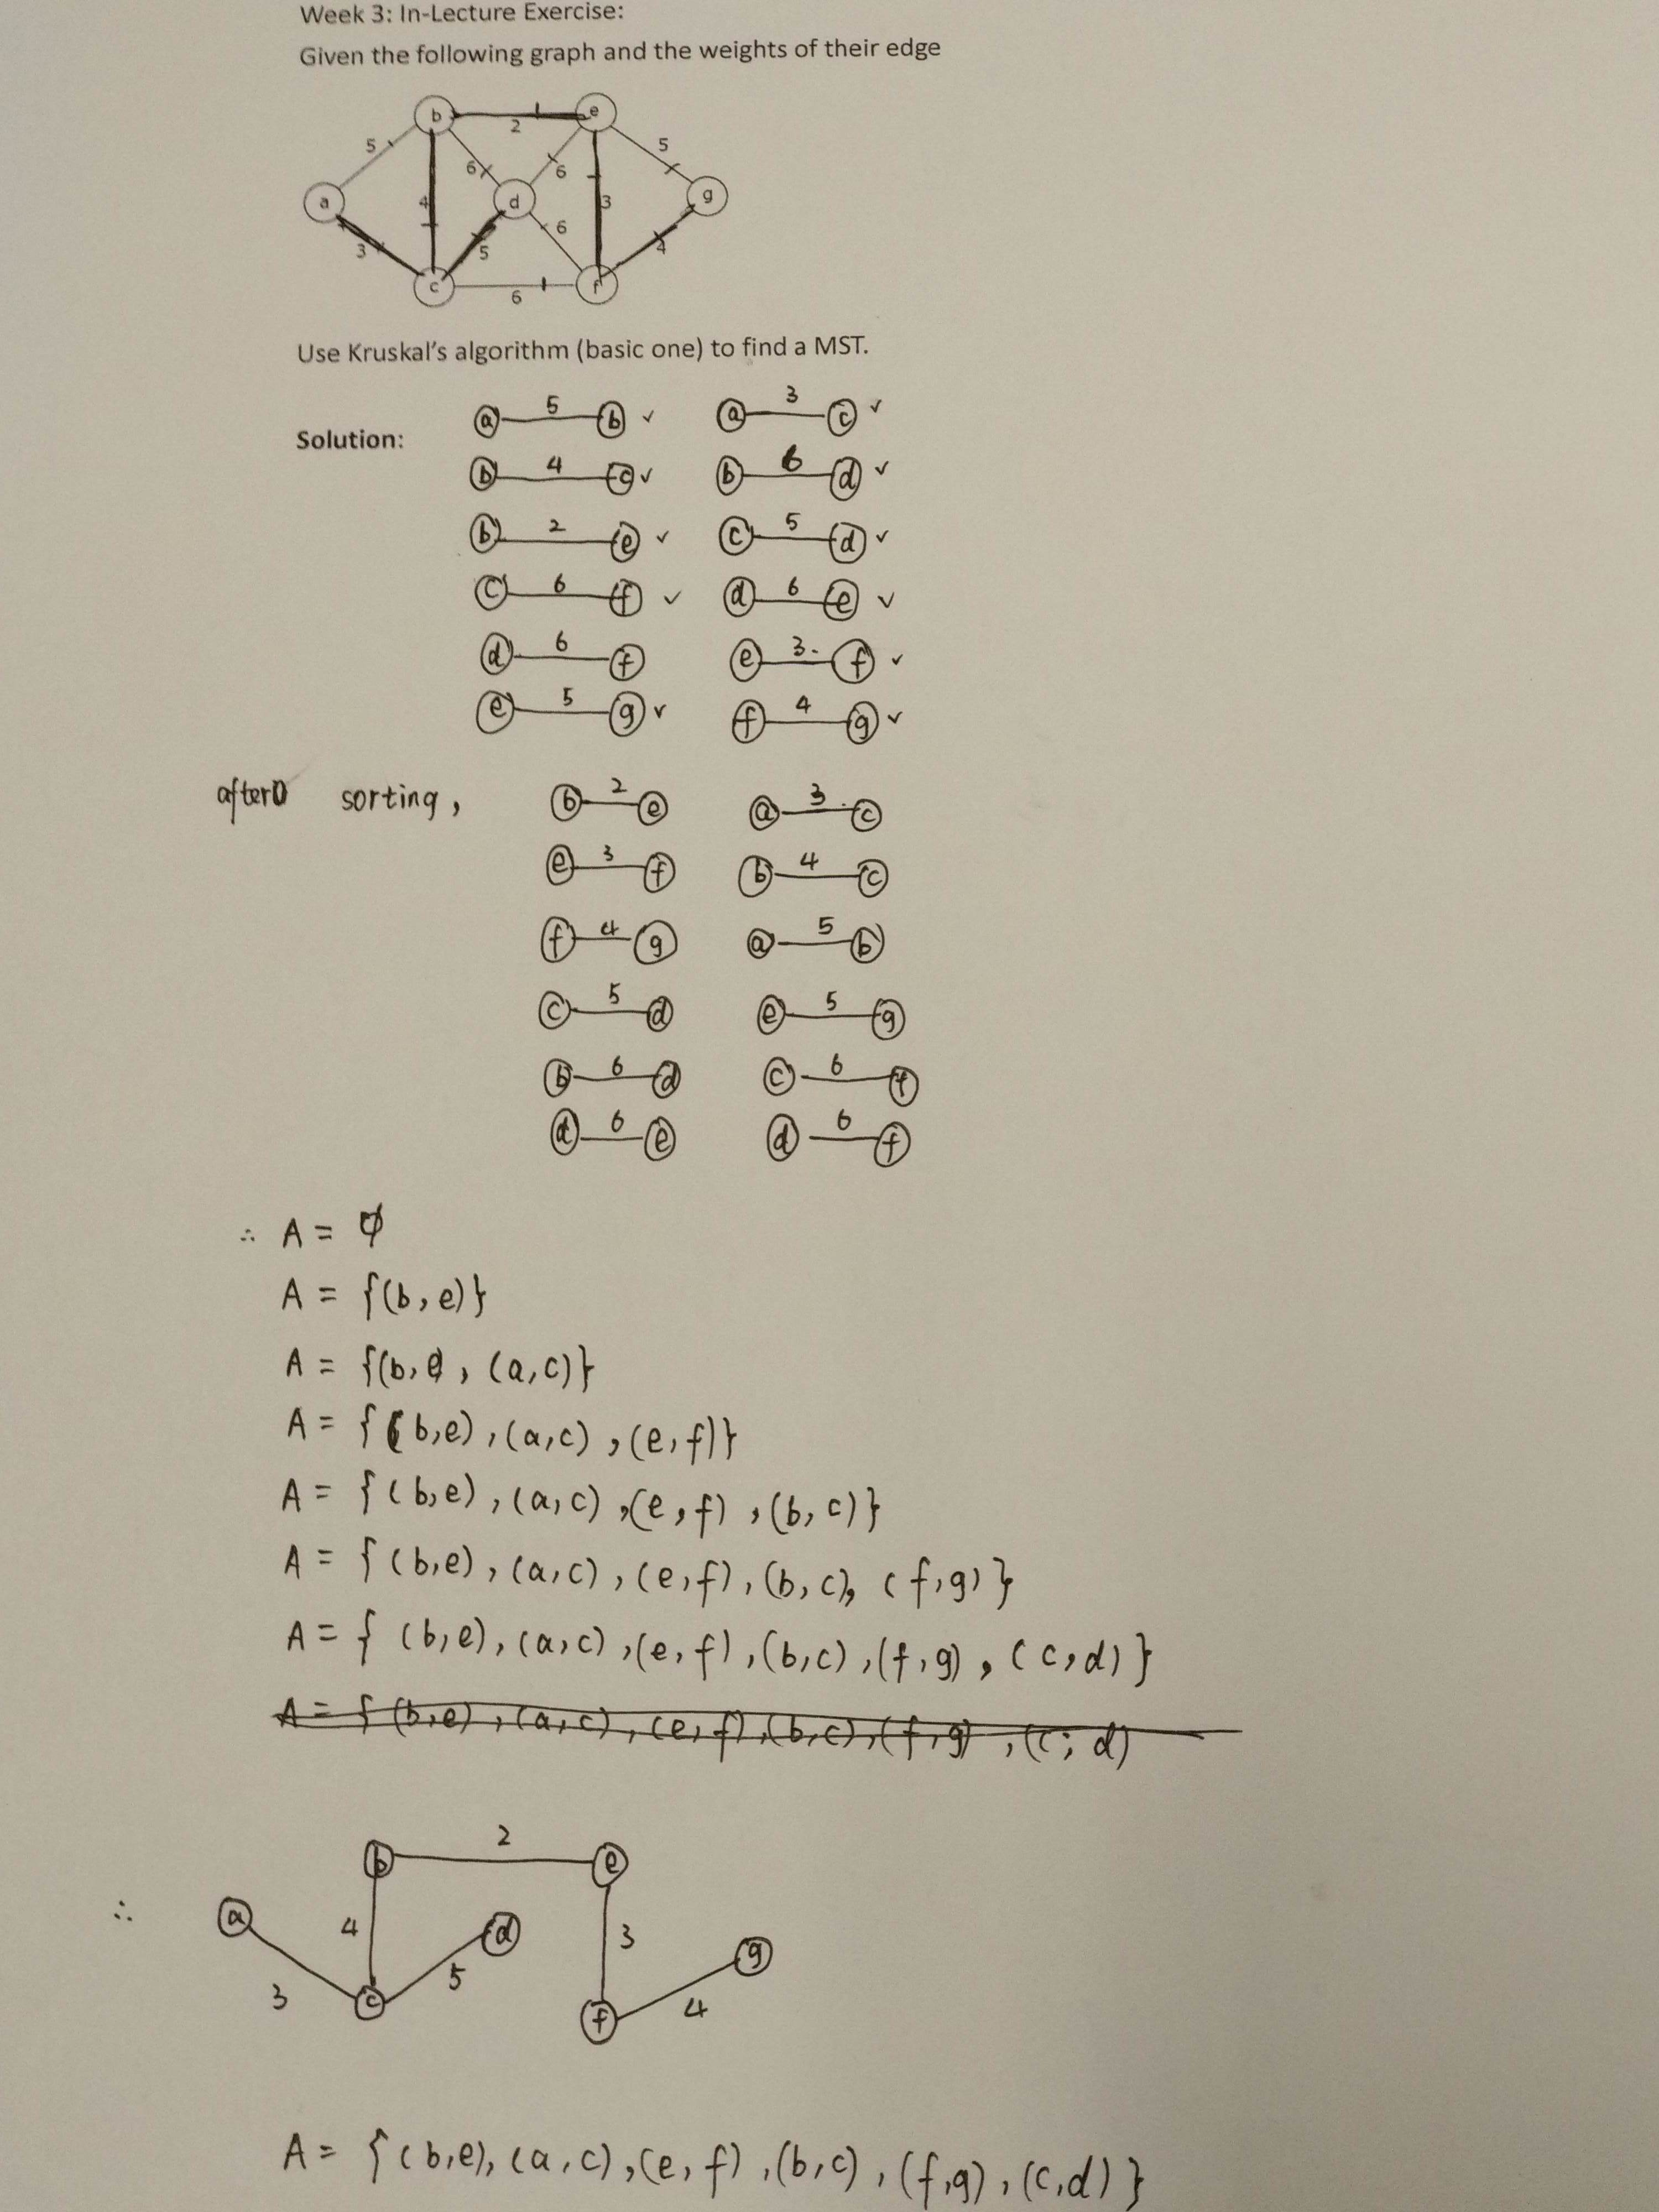 Week 3: In-Lecture Exercise:
Given the following graph and the weights of their edge
b 2 e
5 6 6 5
a 4 d 3 g
3 5 6 4
c 6 f
Use Kruskal's algorithm (basic one) to find a MST.
Solution:
a 5 b ✓ a 3 c ✓
b 4 c ✓ b 6 d ✓
b 2 e ✓ c 5 d ✓
c 6 f ✓ d 6 e ✓
d 6 f e 3 f ✓
e 5 g ✓ f 4 g ✓
after sorting,
b 2 e a 3 c
e 3 f b 4 c
f 4 g a 5 b
c 5 d e 5 g
b 6 d c 6 f
d 6 e d 6 f
∴ A = ϕ
A = {(b, e)}
A = {(b, e), (a, c)}
A = {(b,e), (a,c), (e, f)}
A = {(b,e), (a,c), (e, f), (b, c)}
A = {(b,e), (a,c), (e,f), (b,c), (f,g)}
A = {(b,e), (a,c), (e,f), (b,c), (f,g), (c,d)}
A = {(b,e), (a,c), (e,f), (b,c), (f,g), (c, d)
∴
b 2 e
a 4 d 3 g
3 c 5 f 4
A = {(b,e), (a,c), (e,f), (b,c), (f,g), (c,d)}